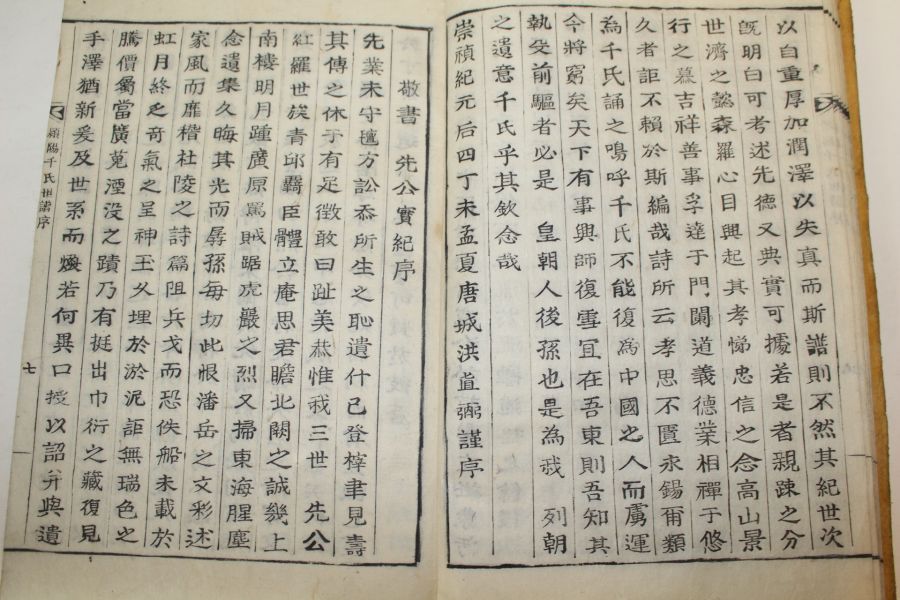 以自重厚加潤澤以失真而斯譜則不然其紀世次
旣明白可考述先德又典實可據若是者親踈之分
世濟之懿森羅心目興起其孝悌忠信之念高山景
行之慕吉祥善事孚達于門闌道義德業相禪于悠
久者詎不賴於斯編哉詩所云孝思不匱永錫爾類
為千氏誦之嗚呼千氏不能復為中國之人而虜運
今將窮矣天下有事興師復雪宜在吾東則吾知其
執殳前驅者必是 皇朝人後孫也是為我 列朝
之遺意千氏乎其欽念哉
崇禎紀元后四丁未孟夏唐城洪直弼謹序
敬書 先公實紀序
先業未守匵方訟忝所生之恥遺什已登榟聿見壽
其傳之休于有足徵敢曰趾美恭惟我三世 先公
紅羅世族靑邱覊臣體立庵思君瞻北闕之誠幾上
南樓明月踵廣原罵賊踞虎巖之烈又掃東海腥塵
念遺集久晦其光而孱孫每切此恨潘岳之文彩述
家風而靡楷杜陵之詩篇阻兵戈而恐佚船未載於
虹月終乏奇氣之呈神玉久埋於淤泥詎無瑞色之
騰價屬當廣蒐湮没之蹟乃有挺出巾衍之藏復見
手澤猶新爰及世系而煥若何異口授以詔幷與遺
穎陽千氏世譜序
七